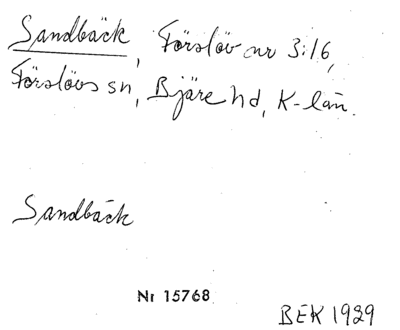 Sandbäck, Förslöv nr 3:16,
Förslövs sn, Bjäre hd, K-län.
Sandbäck
Nr 15768
BEK 1929